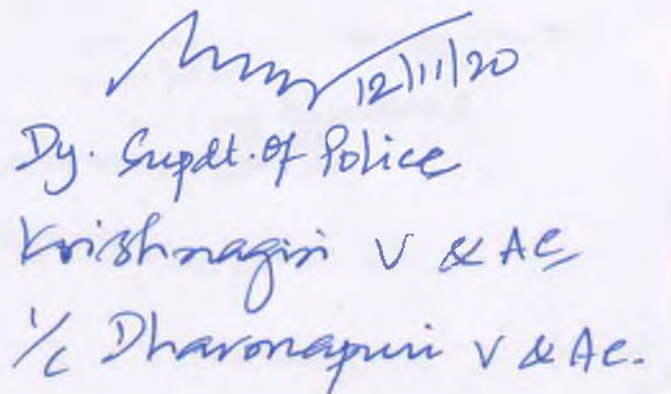 12/11/20
Dy. Supdt. of Police
Krishnagiri V & AC
I/C Dharmapuri V & AC.